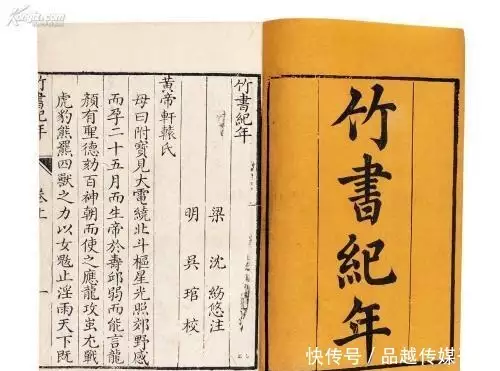 竹書紀年
竹書紀年
梁 沈約附注
明 吳琯校
黃帝軒轅氏
母曰附寶見大電繞北斗樞星光照郊野感
而孕二十五月而生帝於壽邱弱而能言龍
顏有聖德劾百神朝而使之應龍攻蚩尤戰
虎豹熊羆四獸之力以女魃止淫雨天下既
竹書紀年 卷上 一
快传号 / 品越传媒